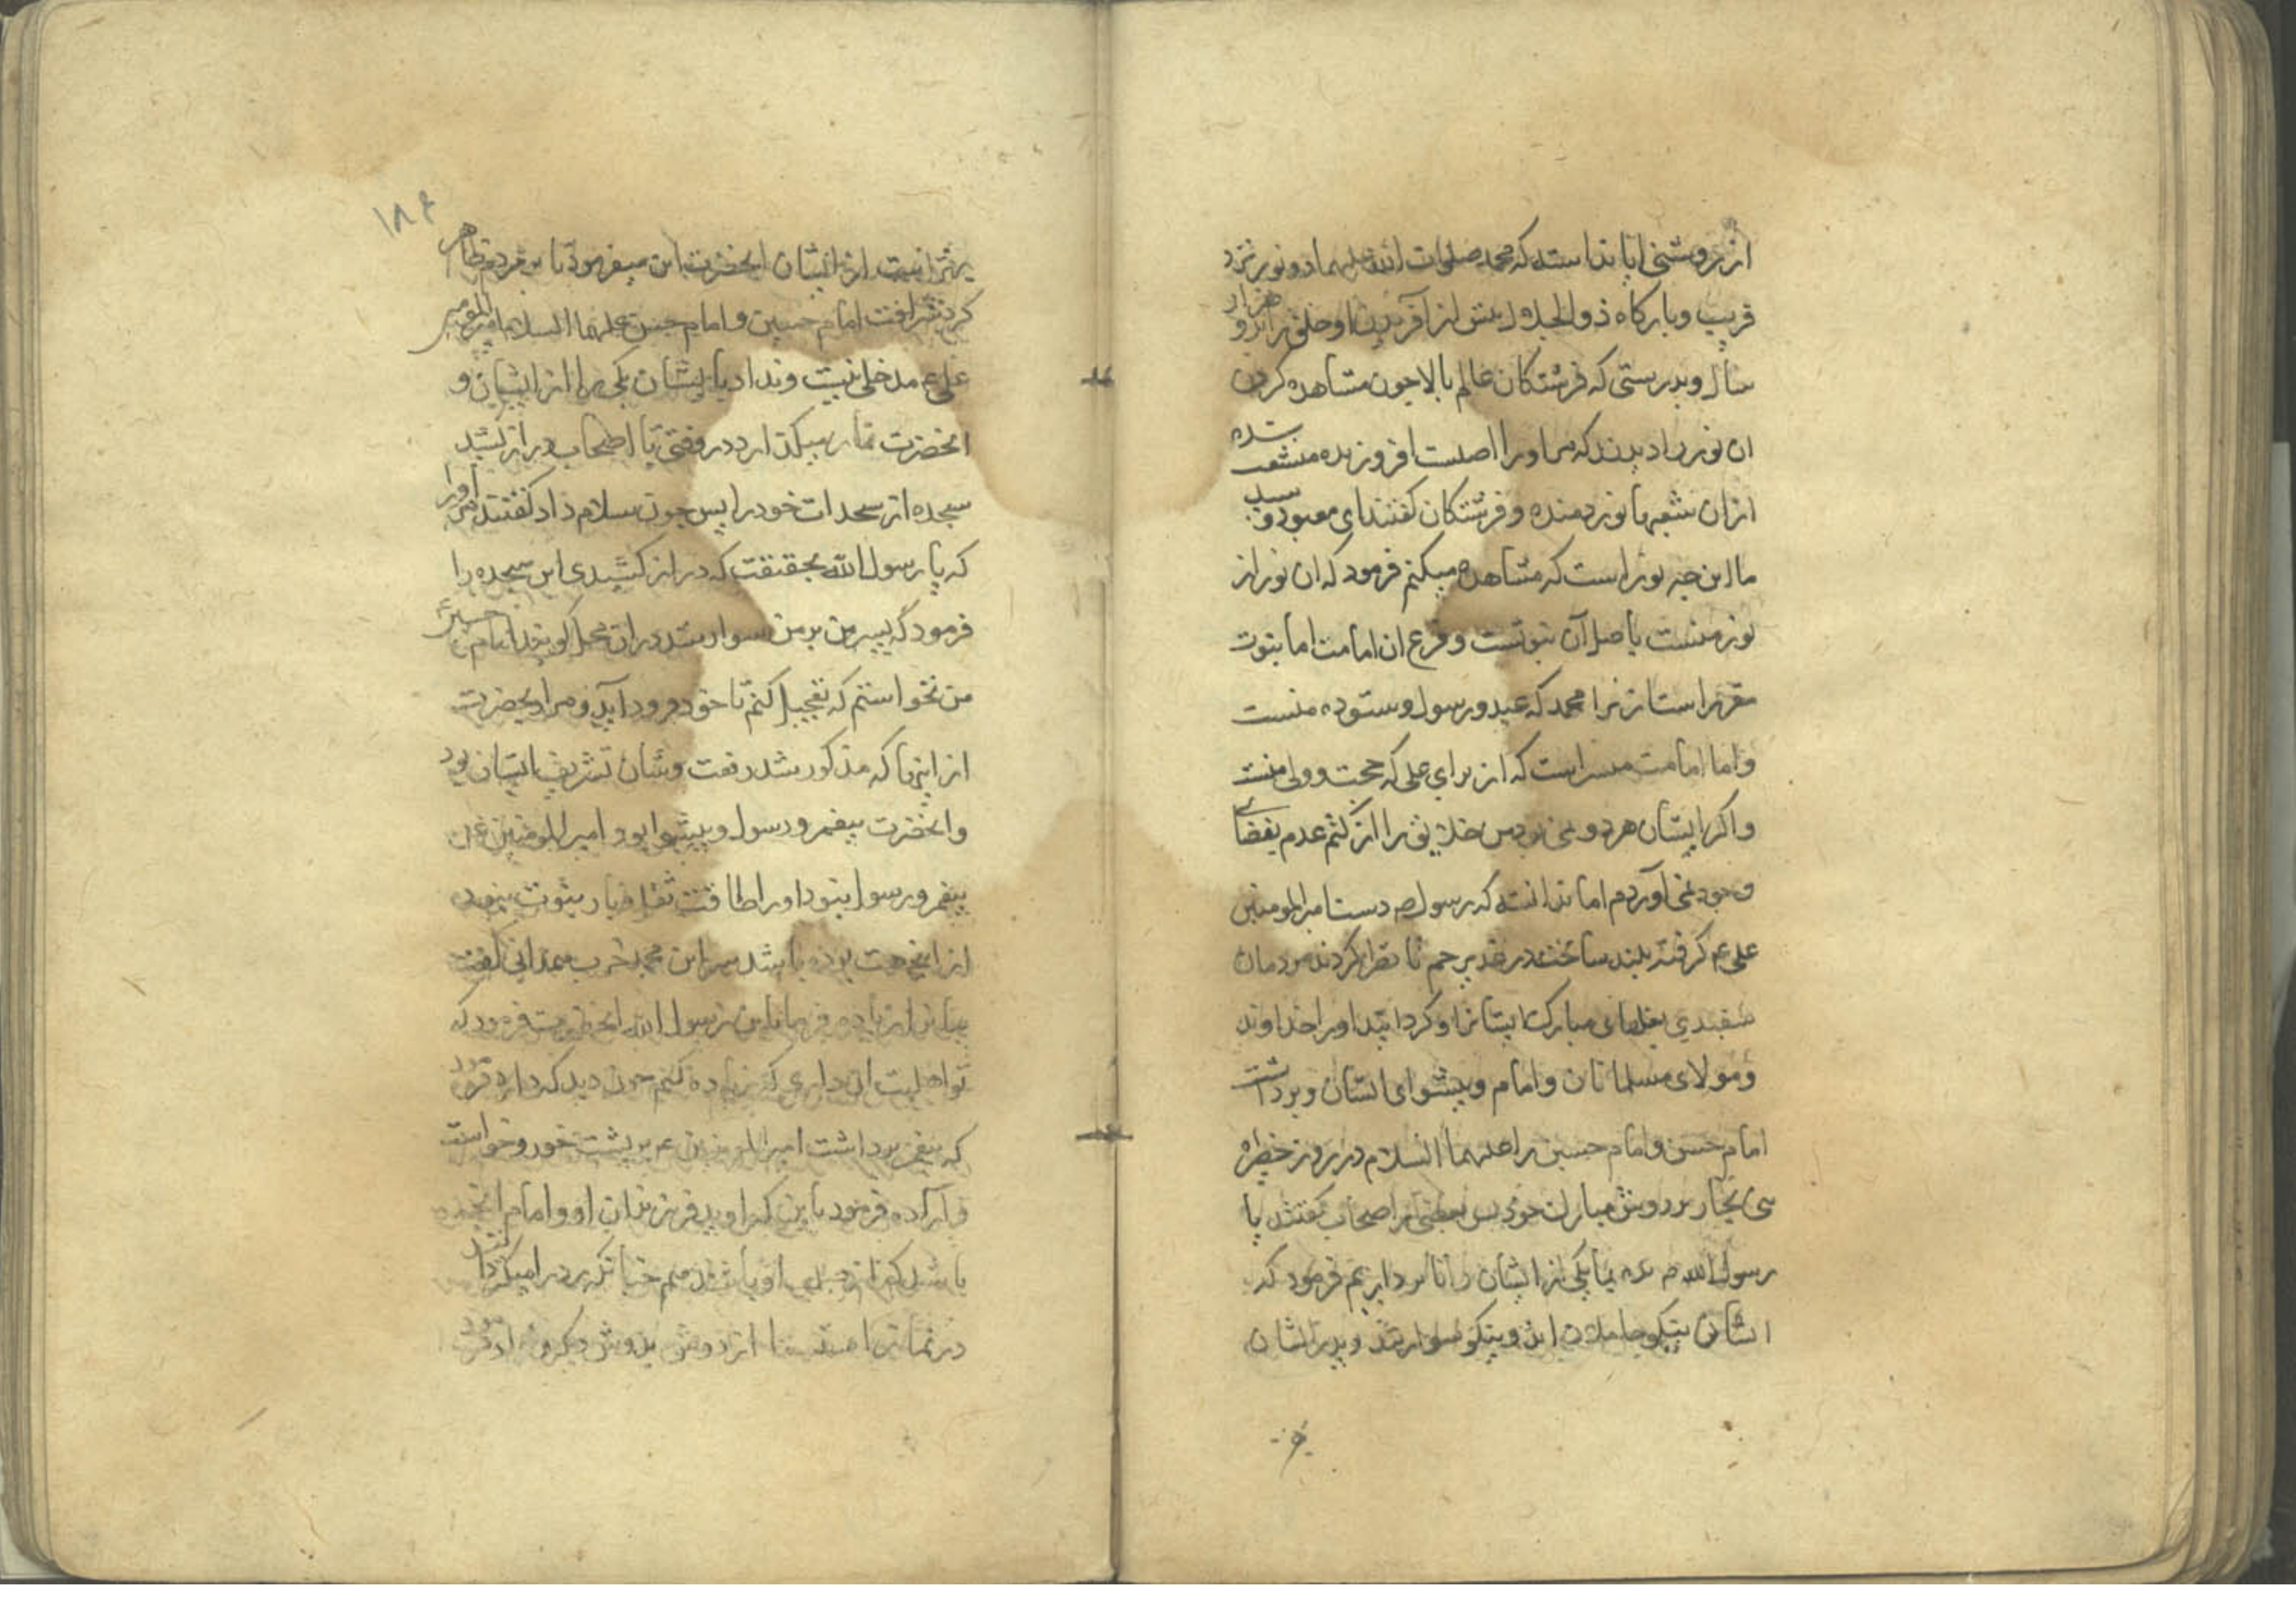 از روشنی ایا ندانسته که محمد صلوات الله علیهما دو نور نزد
قریب و بارکاه ذوالجلال پیش از آفریدن او خلق را بدو هزار
سال و بدرستی که فرشتکان عالم بالا چون مشاهده کردن
ان نور را دیدند که مر او را اصلست افروزنده منشعب شده
از ان شعبها نور دهنده و فرشتکان کفتند ای معبود و سید
ما این چه نور است که مشاهده میکنم فرمود که ان نور از
نور منست باصل آن نبوتست و فرع ان امامت اما نبوت
مقرر است از برا محمد که عبد و رسول و ستوده منست
و اما امامت میسر است که از برای علی که حجت و ولی منست
و اکر ایشان هر دو نمی بودس خلایق را از کتم عدم بفضای
وجود نمی آوردم اما ندانسته که رسول ص دست امیرالمومنین
علی ع م کرفته بلند ساخت در غدیر خم تا نظر کردند مردمان
سفیدی بغلهای مبارک ایشانرا و کردانید او را خداوند
و مولای مسلمانان و امام و پیشوای ایشان و برداشت
امام حسن و امام حسین را علیهما السلام در روز خطیره
بنی نجار بر دوش مبارک خود پس بعضی از اصحاب کفتند یا
رسول الله بما یکی از ایشان را تا برداریم فرمود که
ایشان نیکو حاملان اند و نیکو سوارند و پدر ایشان
۱۸۶
بهتر است از ایشان انحضرت این میفرمود تا بر مردم ظاهر
کرد شرافت امام حسین و امام حسن علیهما السلام امیرالمومنین
علی ع م مدخلی نیست و نداد بایشان یکی را از ایشان و
انحضرت نماز میکذارد در وقتی با اصحاب دراز کشید
سجده از سجدات خود را پس چون سلام داد کفتند مر اورا
که یا رسول الله بحقیقت که دراز کشیدی این سجده را
فرمود که پسر من بر من سوار شد در ان محل کویند امام حسین
من نخواستم که تعجیل کنم تا خود فرود آید و مراد بحضرت
از اینها که مذکور شد رفعت و شان تشریف ایشان بود
و انحضرت پیغمبر و رسول و پیشوا بود و امیرالمومنین علی
پیغمبر و رسول نبود او را طاقت ثقل بار نبوت نبوده
از انجهت بوده باشد سر این محمد حرب همدانی کفت
بیان از زیاده فرما یابن رسول الله انحضرت فرمود که
تو اهلیت ان داری که زیاده کنم چون دید که دارد فرمود
که پیغمبر برداشت امیرالمومنین ع بر پشت خود و خواست